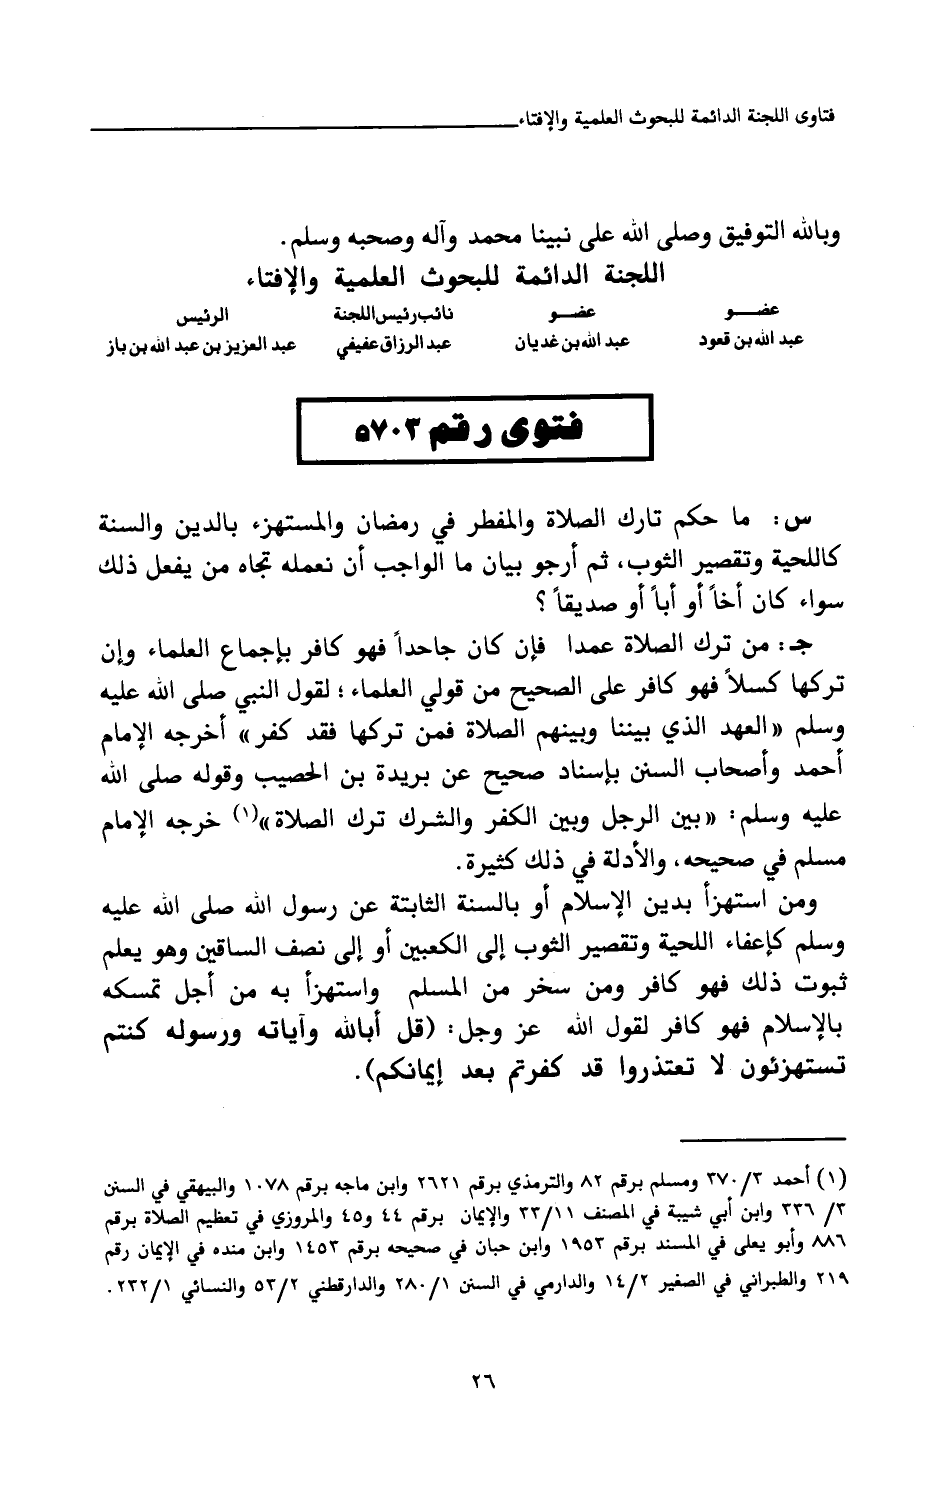 فتاوى اللجنة الدائمة للبحوث العلمية والإفتاء
وبالله التوفيق وصلى الله على نبينا محمد وآله وصحبه وسلم.
اللجنة الدائمة للبحوث العلمية والإفتاء
عضـــو عضـــو نائب رئيس اللجنة الرئيس
عبد الله بن قعود عبد الله بن غديان عبد الرزاق عفيفي عبد العزيز بن عبد الله بن باز
فتوى رقم ٥٧٠٣
س: ما حكم تارك الصلاة والمفطر في رمضان والمستهزء بالدين والسنة
كاللحية وتقصير الثوب، ثم أرجو بيان ما الواجب أن نعمله تجاه من يفعل ذلك
سواء كان أخاً أو أباً أو صديقاً؟
جـ: من ترك الصلاة عمدا فإن كان جاحداً فهو كافر بإجماع العلماء وإن
تركها كسلاً فهو كافر على الصحيح من قولي العلماء؛ لقول النبي صلى الله عليه
وسلم «العهد الذي بيننا وبينهم الصلاة فمن تركها فقد كفر» أخرجه الإمام
أحمد وأصحاب السنن بإسناد صحيح عن بريدة بن الحصيب وقوله صلى الله
عليه وسلم: «بين الرجل وبين الكفر والشرك ترك الصلاة»(١) خرجه الإمام
مسلم في صحيحه، والأدلة في ذلك كثيرة.
ومن استهزأ بدين الإسلام أو بالسنة الثابتة عن رسول الله صلى الله عليه
وسلم كإعفاء اللحية وتقصير الثوب إلى الكعبين أو إلى نصف الساقين وهو يعلم
ثبوت ذلك فهو كافر ومن سخر من المسلم واستهزأ به من أجل تمسكه
بالإسلام فهو كافر لقول الله عز وجل: (قل أبالله وآياته ورسوله كنتم
تستهزئون لا تعتذروا قد كفرتم بعد إيمانكم).
(١) أحمد ٣٧٠/٣ ومسلم برقم ٨٢ والترمذي برقم ٢٦٢١ وابن ماجه برقم ١٠٧٨ والبيهقي في السنن
٣/ ٣٣٦ وابن أبي شيبة في المصنف ٣٣/١١ والإيمان برقم ٤٤ و٤٥ والمروزي في تعظيم الصلاة برقم
٨٨٦ وأبو يعلى في المسند برقم ١٩٥٣ وابن حبان في صحيحه برقم ١٤٥٣ وابن منده في الإيمان رقم
٢١٩ والطبراني في الصغير ١٤/٢ والدارمي في السنن ٢٨٠/١ والدارقطني ٥٣/٢ والنسائي ٢٣٢/١.
٢٦